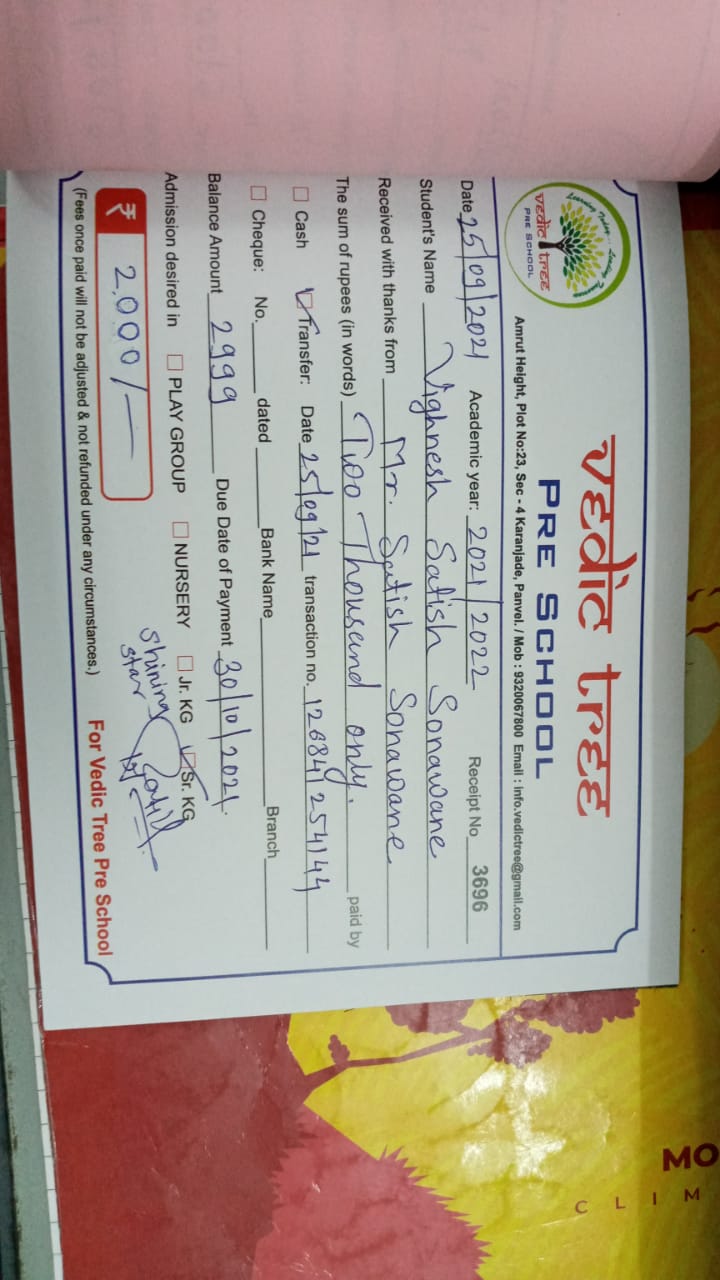 Learning Today... Leading Tomorrow
vedic tree
PRE SCHOOL
vedic tree
PRE SCHOOL
Amrut Height, Plot No:23, Sec - 4 Karanjade, Panvel. / Mob : 9320067800 Email : info.vedictree@gmail.com
Date 25/09/2021 Academic year: 2021/2022 Receipt No 3696
Student's Name Vighnesh Satish Sonawane
Received with thanks from Mr. Satish Sonawane
The sum of rupees (in words) Two Thousand only. paid by
Cash Transfer: Date 25/09/21 transaction no. 126841254144
Cheque: No. dated Bank Name Branch
Balance Amount 2999 Due Date of Payment 30/10/2021.
Admission desired in PLAY GROUP NURSERY Jr. KG Sr. KG
Shining
star
₹ 2,000/-
(Fees once paid will not be adjusted & not refunded under any circumstances.) For Vedic Tree Pre School
MO
CLIM